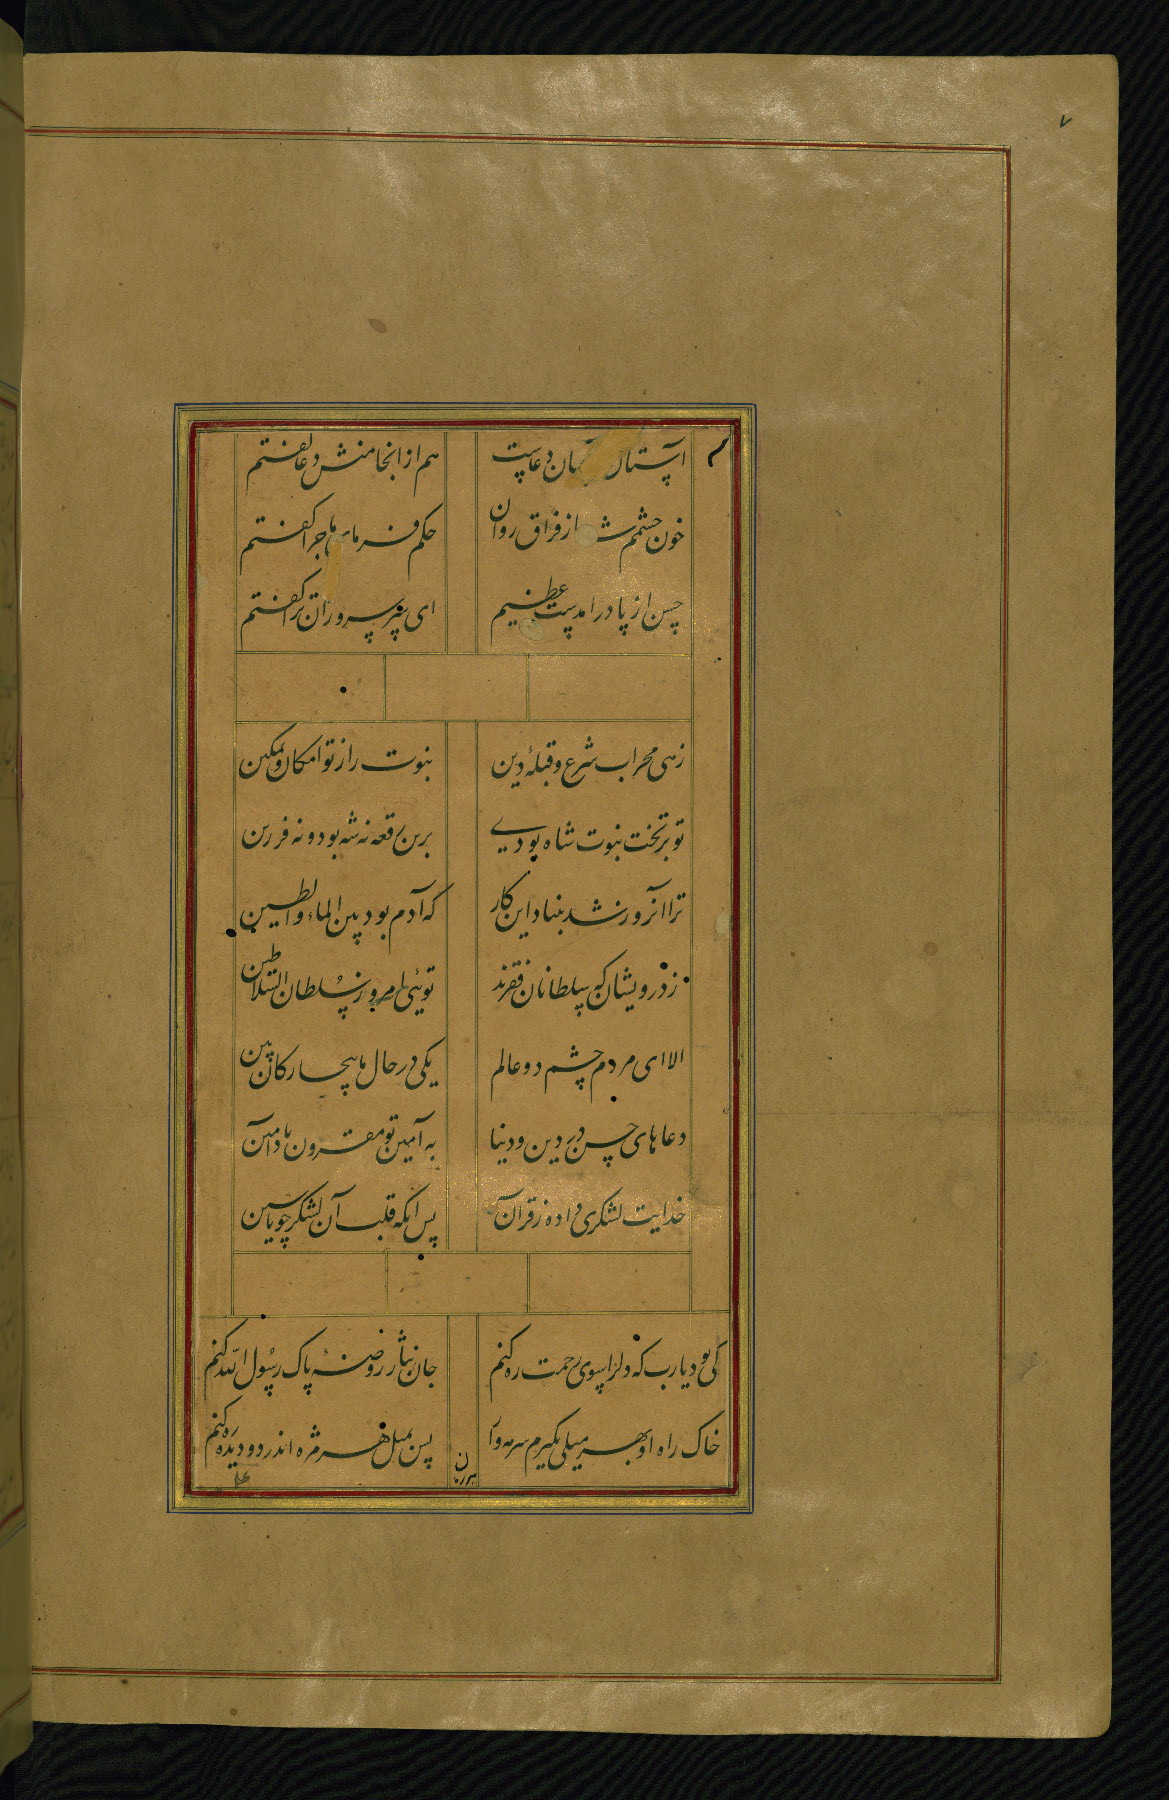 ۷
آستانت آسمان دعاست هم از انجا منش دعا گفتم
خون چشمم شد از فراق روان حکم فرما ماجرا گفتم
حسن از پا درامدست عظیم ای سر سروران ترا گفتم
زهی محراب شرع و قبلهٔ دین نبوت را ز تو امکان و تمکین
تو بر تخت نبوت شاه بودی برین رقعه نه شه بود و نه فرزین
ترا آنروز شد بنیاد این کار که آدم بود بین الماء والطین
ز درویشان که سلطانان فقرند توئی امروز سلطان السلاطین
الا ای مردم چشم دو عالم یکی در حال ما بیچارکان بین
دعاهای حسن در دین و دنیا به آمین تو مقرون باد آمین
خدایت لشکری داده ز قرآن پس انکه قلب آن لشکر چو یاسین
کی بود یارب که دل را سوی رحمت ره کنم جان نثار روضهٔ پاک رسول الله کنم
خاک راه او بهر میلی بکیرم سرمه وار پس بمیل هر مژه اندر دو دیده ره کنم